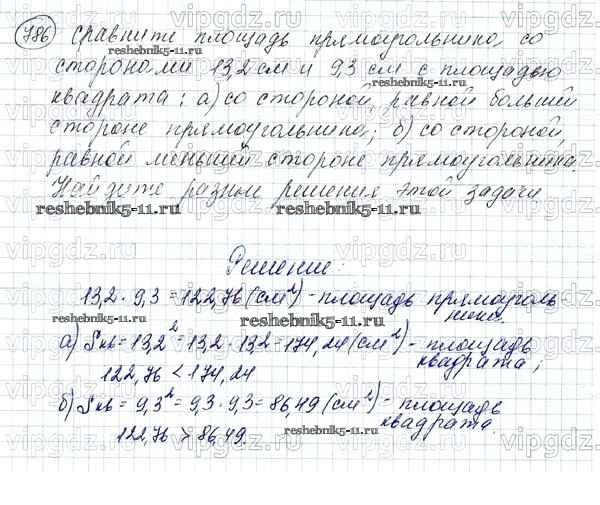 786 Сравните площадь прямоугольника со
сторонами 13,2 см и 9,3 см с площадью
квадрата: а) со стороной, равной большей
стороне прямоугольника; б) со стороной,
равной меньшей стороне прямоугольника.
Найдите разные решения этой задачи.
Решение:
13,2 · 9,3 = 122,76 (см²) - площадь прямоуголь
ника.
а) Sкв = 13,2² = 13,2 · 13,2 = 174,24 (см²) - площадь
квадрата;
122,76 < 174,24
б) Sкв = 9,3² = 9,3 · 9,3 = 86,49 (см²) - площадь
квадрата.
122,76 > 86,49.
reshebnik5-11.ru
vipgdz.ru